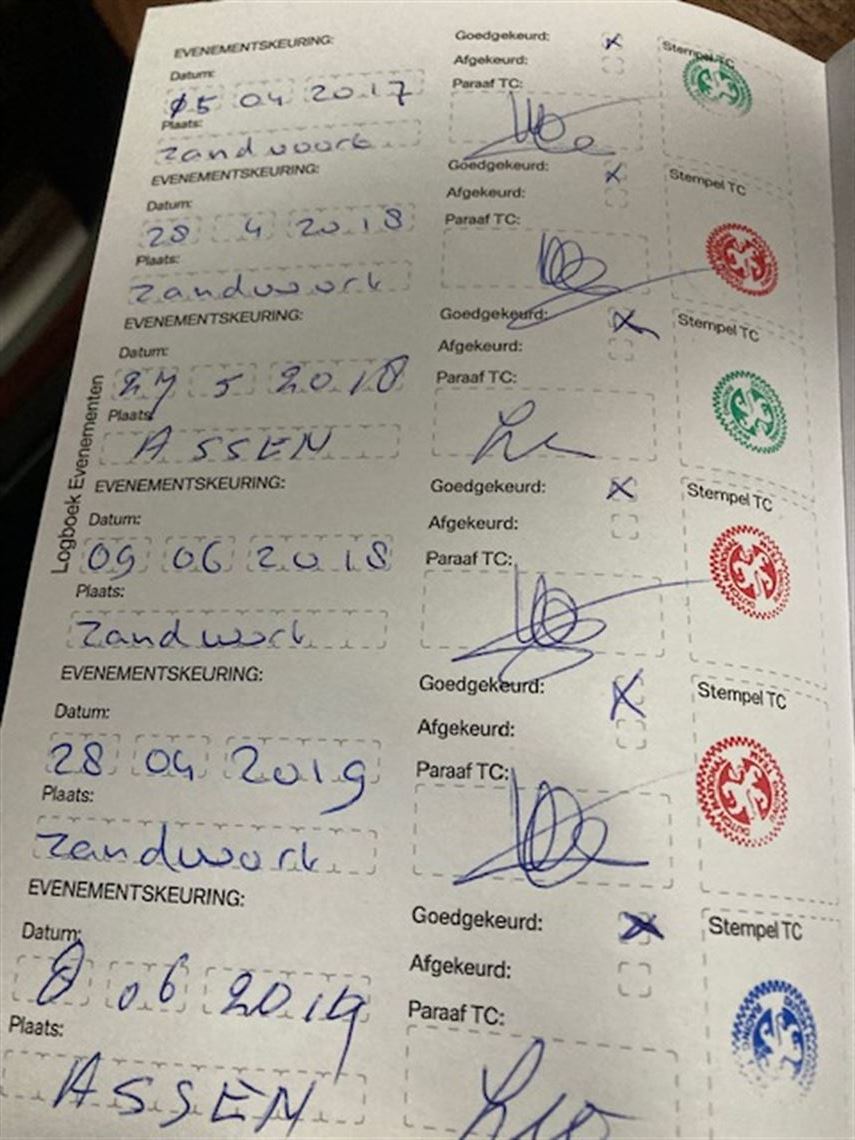 EVENEMENTSKEURING:
Goedgekeurd: x
Stempel TC
Datum:
Afgekeurd:
05 04 2017
Paraaf TC:
Plaats:
Zandvoort
EVENEMENTSKEURING:
Goedgekeurd: x
Stempel TC
Datum:
Afgekeurd:
28 4 2018
Paraaf TC:
Plaats:
Zandvoort
EVENEMENTSKEURING:
Goedgekeurd: x
Stempel TC
Datum:
Afgekeurd:
27 5 2018
Paraaf TC:
Plaats:
ASSEN
Logboek Evenementen
EVENEMENTSKEURING:
Goedgekeurd: x
Stempel TC
Datum:
Afgekeurd:
09 06 2018
Paraaf TC:
Plaats:
Zandvoort
EVENEMENTSKEURING:
Goedgekeurd: x
Stempel TC
Datum:
Afgekeurd:
28 04 2019
Paraaf TC:
Plaats:
Zandvoort
EVENEMENTSKEURING:
Goedgekeurd: x
Stempel TC
Datum:
Afgekeurd:
8 06 2019
Paraaf TC:
Plaats:
ASSEN